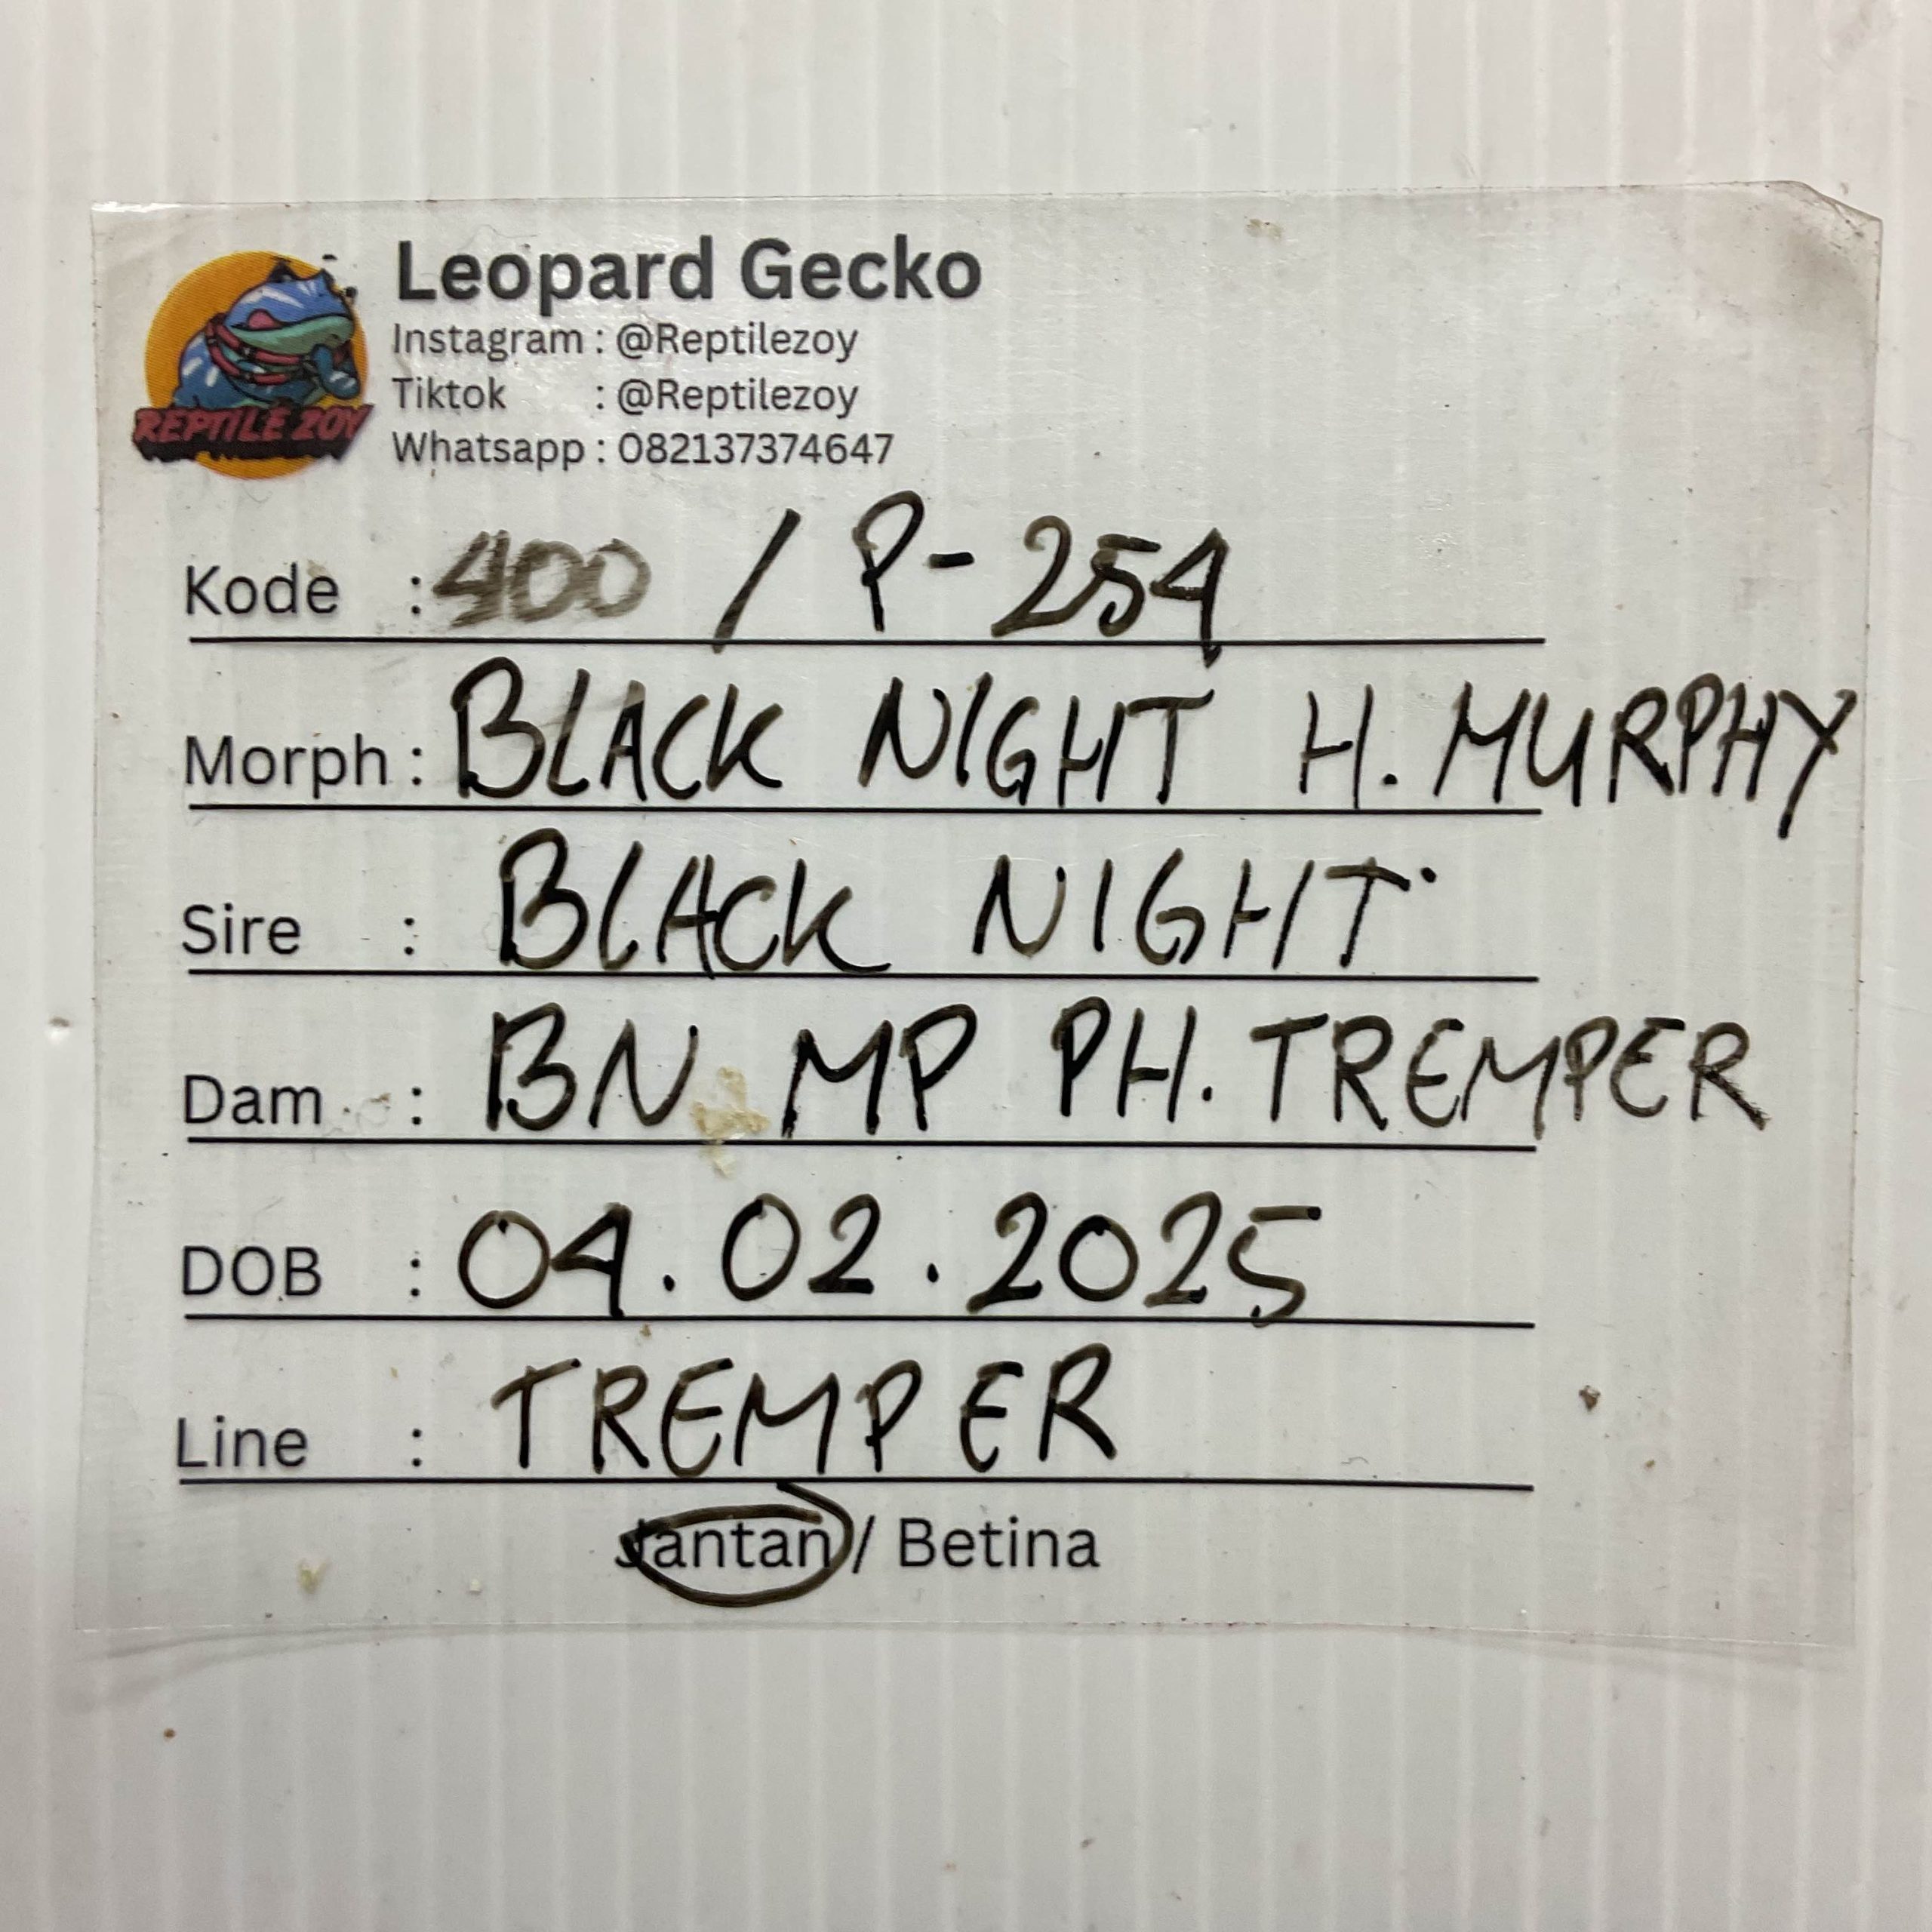 Leopard Gecko
Instagram : @Reptilezoy
Tiktok : @Reptilezoy
Whatsapp : 082137374647
REPTILE ZOY
Kode : 400 / P-254
Morph : BLACK NIGHT H. MURPHY
Sire : BLACK NIGHT
Dam : BN MP PH. TREMPER
DOB : 04.02.2025
Line : TREMPER
Jantan / Betina